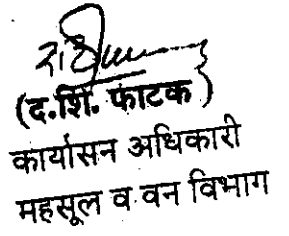 (द.शि. फाटक)
कार्यासन अधिकारी
महसूल व वन विभाग